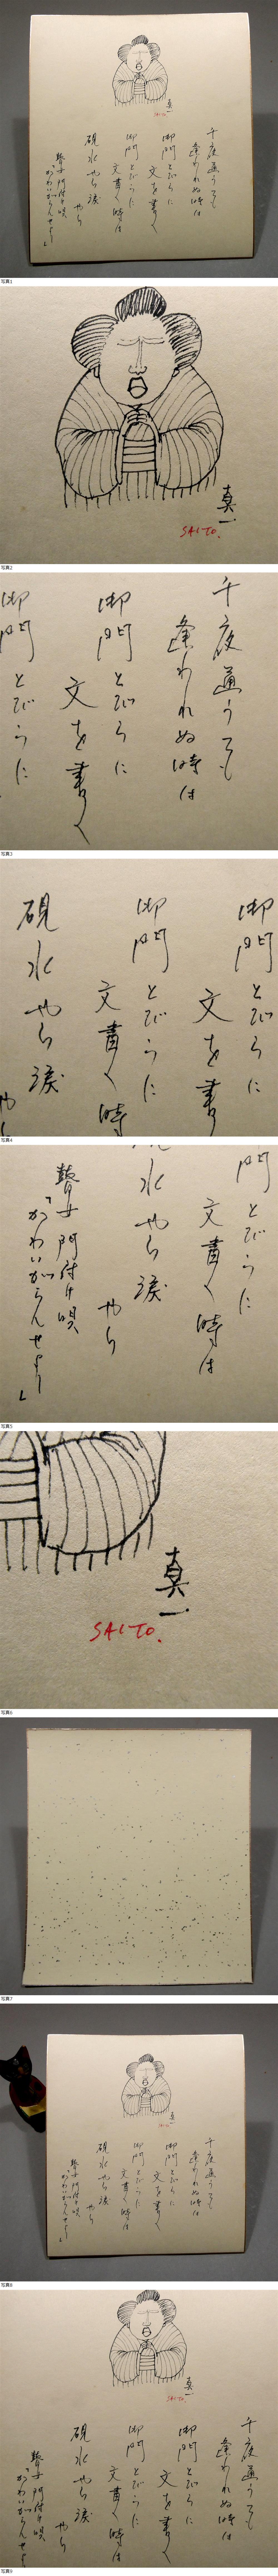 真一
SAITO.
千夜通うても
逢われぬ時は
御門とびらに
文を書く
御門とびらに
文書く時は
硯水やら涙
やら
瞽女門付け唄
「かわいがらんせよー」
写真1
真一
SAITO.
写真2
千夜通うても
逢われぬ時は
御門とびらに
文を書く
御門とびらに
写真3
御門とびらに
文を書
御門とびらに
文書く時
硯水やら涙
やら
写真4
門とびらに
文書く時は
水やら涙
やら
瞽女門付け唄
「かわいがらんせよー」
写真5
真一
SAITO.
写真6
写真7
真一
SAITO.
千夜通うても
逢われぬ時は
御門とびらに
文を書く
御門とびらに
文書く時は
硯水やら涙
やら
瞽女門付け唄
「かわいがらんせよー」
写真8
真一
SAITO.
千夜通うても
逢われぬ時は
御門とびらに
文を書く
御門とびらに
文書く時は
硯水やら涙
やら
瞽女門付け唄
「かわいがらんせよ
写真9